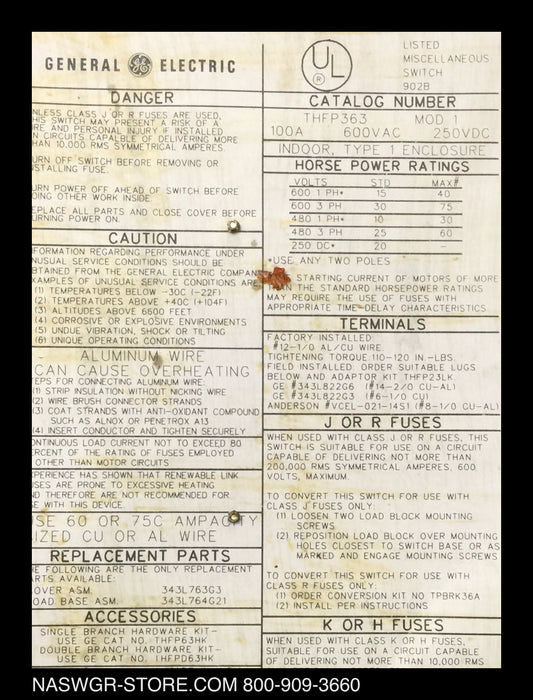 GENERAL GE ELECTRIC
DANGER
NLESS CLASS J OR R FUSES ARE USED,
HIS SWITCH MAY PRESENT A RISK OF A
IRE AND PERSONAL INJURY IF INSTALLED
N CIRCUITS CAPABLE OF DELIVERING MORE
HAN 10,000 RMS SYMMETRICAL AMPERES.
URN OFF SWITCH BEFORE REMOVING OR
NSTALLING FUSE.
URN POWER OFF AHEAD OF SWITCH BEFORE
OING OTHER WORK INSIDE
EPLACE ALL PARTS AND CLOSE COVER BEFORE
URNING POWER ON.
CAUTION
FORMATION REGARDING PERFORMANCE UNDER
NUSUAL SERVICE CONDITIONS SHOULD BE
BTAINED FROM THE GENERAL ELECTRIC COMPAN
XAMPLES OF UNUSUAL SERVICE CONDITIONS ARE
(1) TEMPERATURES BELOW -30C (-22F)
(2) TEMPERATURES ABOVE +40C (+104F)
(3) ALTITUDES ABOVE 6600 FEET
(4) CORROSIVE OR EXPLOSIVE ENVIRONMENTS
(5) UNDUE VIBRATION, SHOCK OR TILTING
(6) UNIQUE OPERATING CONDITIONS
ALUMINUM WIRE
CAN CAUSE OVERHEATING
TEPS FOR CONNECTING ALUMINUM WIRE:
(1) STRIP INSULATION WITHOUT NICKING WIRE
(2) WIRE BRUSH CONNECTOR STRANDS
(3) COAT STRANDS WITH ANTI-OXIDANT COMPOUND
SUCH AS ALNOX OR PENETROX A13
(4) INSERT CONDUCTOR AND TIGHTEN SECURELY
ONTINUOUS LOAD CURRENT NOT TO EXCEED 80
ERCENT OF THE RATING OF FUSES EMPLOYED
OTHER THAN MOTOR CIRCUITS
XPERIENCE HAS SHOWN THAT RENEWABLE LINK
USES ARE PRONE TO EXCESSIVE HEATING
ND THEREFORE ARE NOT RECOMMENDED FOR
SE WITH THIS DEVICE.
USE 60 OR 75C AMPACITY
IZED CU OR AL WIRE
REPLACEMENT PARTS
HE FOLLOWING ARE THE ONLY REPLACEMENT
ARTS AVAILABLE:
OVER ASM. 343L763G3
OAD BASE ASM. 343L764G21
ACCESSORIES
SINGLE BRANCH HARDWARE KIT-
USE GE CAT NO. THFP63HK
DOUBLE BRANCH HARDWARE KIT-
USE GE CAT NO. THFPD63HK
UL
LISTED
MISCELLANEOUS
SWITCH
902B
CATALOG NUMBER
THFP363 MOD 1
100A 600VAC 250VDC
INDOOR, TYPE 1 ENCLOSURE
HORSE POWER RATINGS
VOLTS STD MAX#
600 1 PH* 15 40
600 3 PH 30 75
480 1 PH* 10 30
480 3 PH 25 60
250 DC* 20 -
*USE ANY TWO POLES
STARTING CURRENT OF MOTORS OF MORE
THE STANDARD HORSEPOWER RATINGS
MAY REQUIRE THE USE OF FUSES WITH
APPROPRIATE TIME-DELAY CHARACTERISTICS
TERMINALS
FACTORY INSTALLED:
#12-1/0 AL/CU WIRE
TIGHTENING TORQUE 110-120 IN-LBS.
FIELD INSTALLED ORDER SUITABLE LUGS
BELOW AND ADAPTOR KIT THFP23LK
GE #343L822G6 (#14-2/0 CU-AL)
GE #343L822G3 (#6-1/0 CU)
ANDERSON #VCEL-021-14S1 (#8-1/0 CU-AL)
J OR R FUSES
WHEN USED WITH CLASS J OR R FUSES, THIS
SWITCH IS SUITABLE FOR USE ON A CIRCUIT
CAPABLE OF DELIVERING NOT MORE THAN
200,000 RMS SYMMETRICAL AMPERES, 600
VOLTS, MAXIMUM.
TO CONVERT THIS SWITCH FOR USE WITH
CLASS J FUSES ONLY:
(1) LOOSEN TWO LOAD BLOCK MOUNTING
SCREWS
(2) REPOSITION LOAD BLOCK OVER MOUNTING
HOLES CLOSEST TO SWITCH BASE OR AS
MARKED AND ENGAGE MOUNTING SCREWS
TO CONVERT THIS SWITCH FOR USE WITH
CLASS R FUSES ONLY:
(1) ORDER CONVERSION KIT NO TPBRK36A
(2) INSTALL PER INSTRUCTIONS
K OR H FUSES
WHEN USED WITH CLASS K OR H FUSES,
SUITABLE FOR USE ON A CIRCUIT CAPABLE
OF DELIVERING NOT MORE THAN 10,000 RMS
NASWGR-STORE.COM 800-909-3660